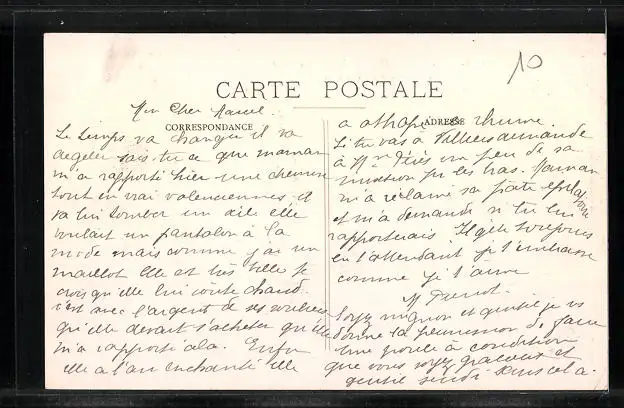 10
CARTE POSTALE
Mon Cher Marcel
CORRESPONDANCE
ADRESSE
Le temps va changer il va
degeler sais-tu ce que maman
m'a rapporté hier une chemise
tout en vrai valenciennes, il
va lui tomber un œil elle
voulait un pantalon à la
mode mais comme j'ai un
maillot Elle est très belle je
crois qu'elle lui coûte chaud
c'est avec l'argent de ses souliers
qu'elle devait s'acheter qu'elle
m'a rapporté cela. Enfin
elle a l'air enchantée elle
a attrapé rhume.
Si tu vas à Villiers demande
à un peu de sa
pr les bras. Maman
m'a réclamé sa pate
et m'a demandé si tu lui
rapporterais toujours
en t'attendant je t'embrasse
comme je t'aime
Soyez mignon et gentil je vs
donne la permission de faire
une à condition
que vous soyez gracieux et
gentil sans cela.